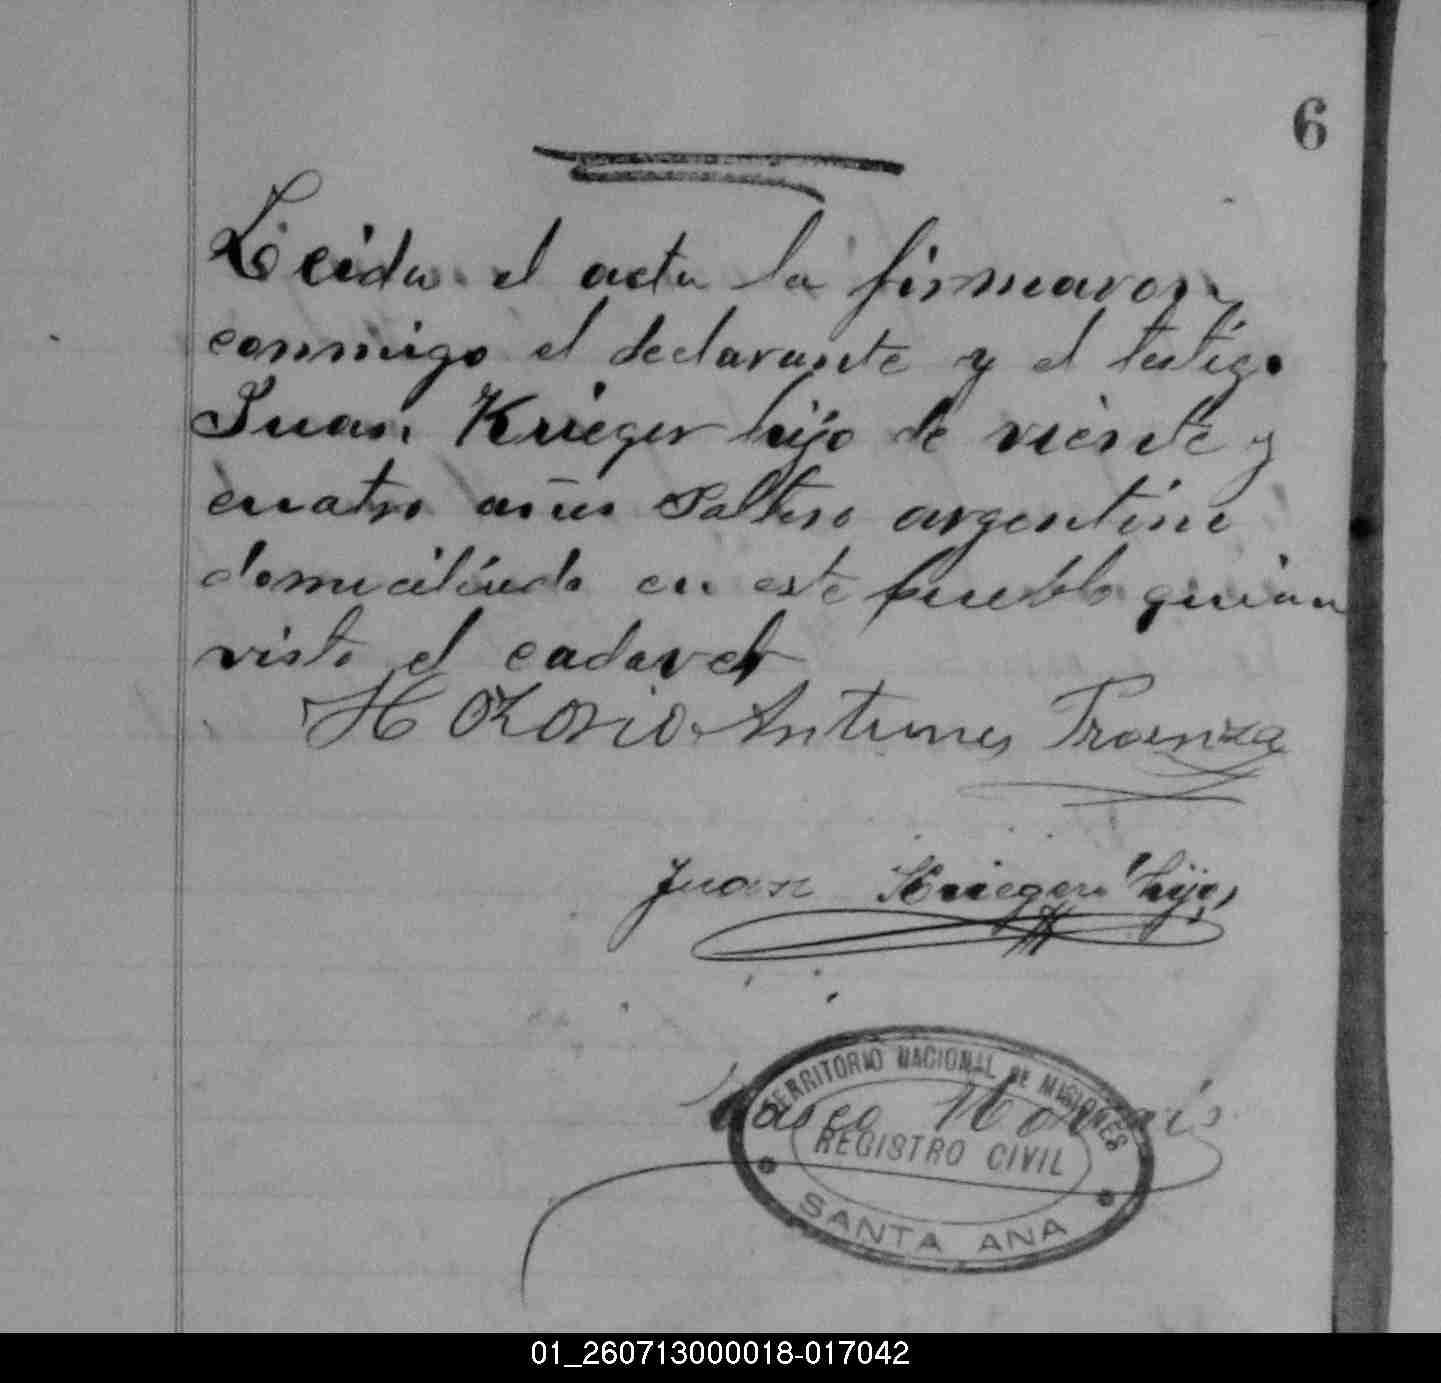 6
Leida el acta la firmaron
conmigo el declarante y el testigo
Juan Krieger hijo de viente y
cuatro años Soltero argentino
domiciliado en este pueblo quien a
visto el cadaver
H Ozorio Antunes
Juan Krieger hijo
TERRITORIO NACIONAL DE MISIONES
REGISTRO CIVIL
SANTA ANA
01_260713000018-017042